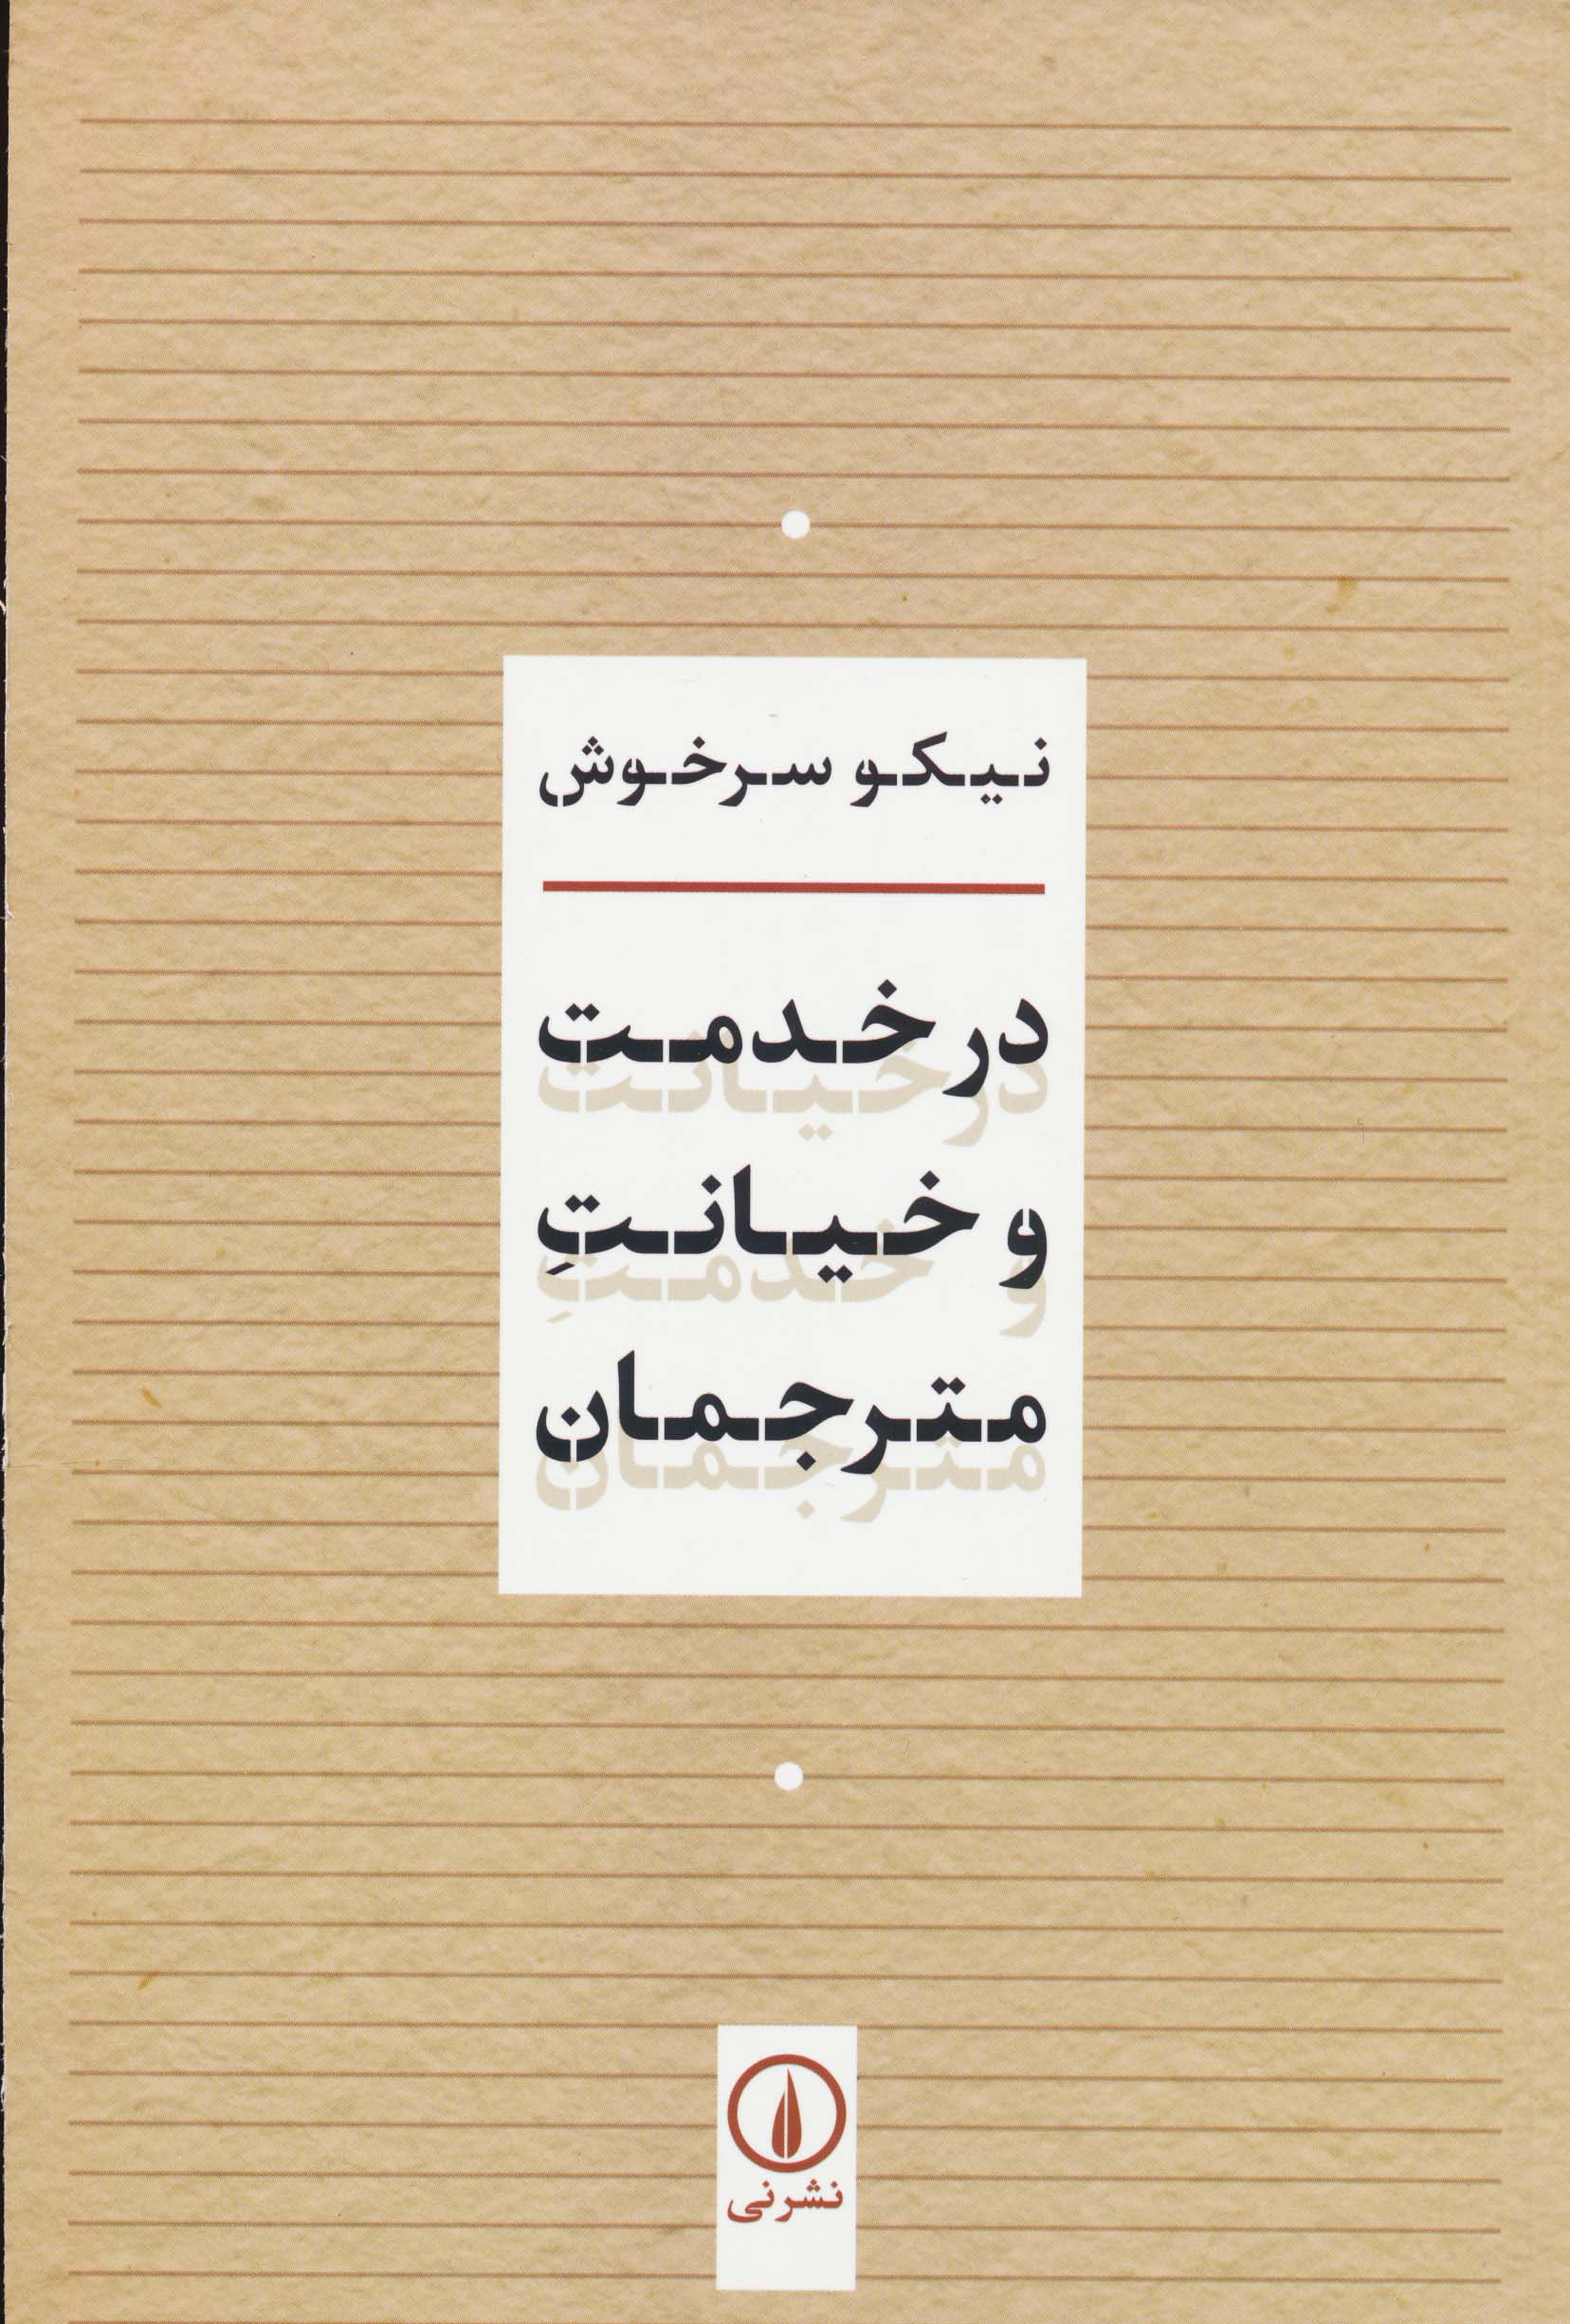 نیکو سرخوش
در خدمت
در خیانت
و خیانتِ
و خدمتِ
مترجمان
مترجمان
نشرنی